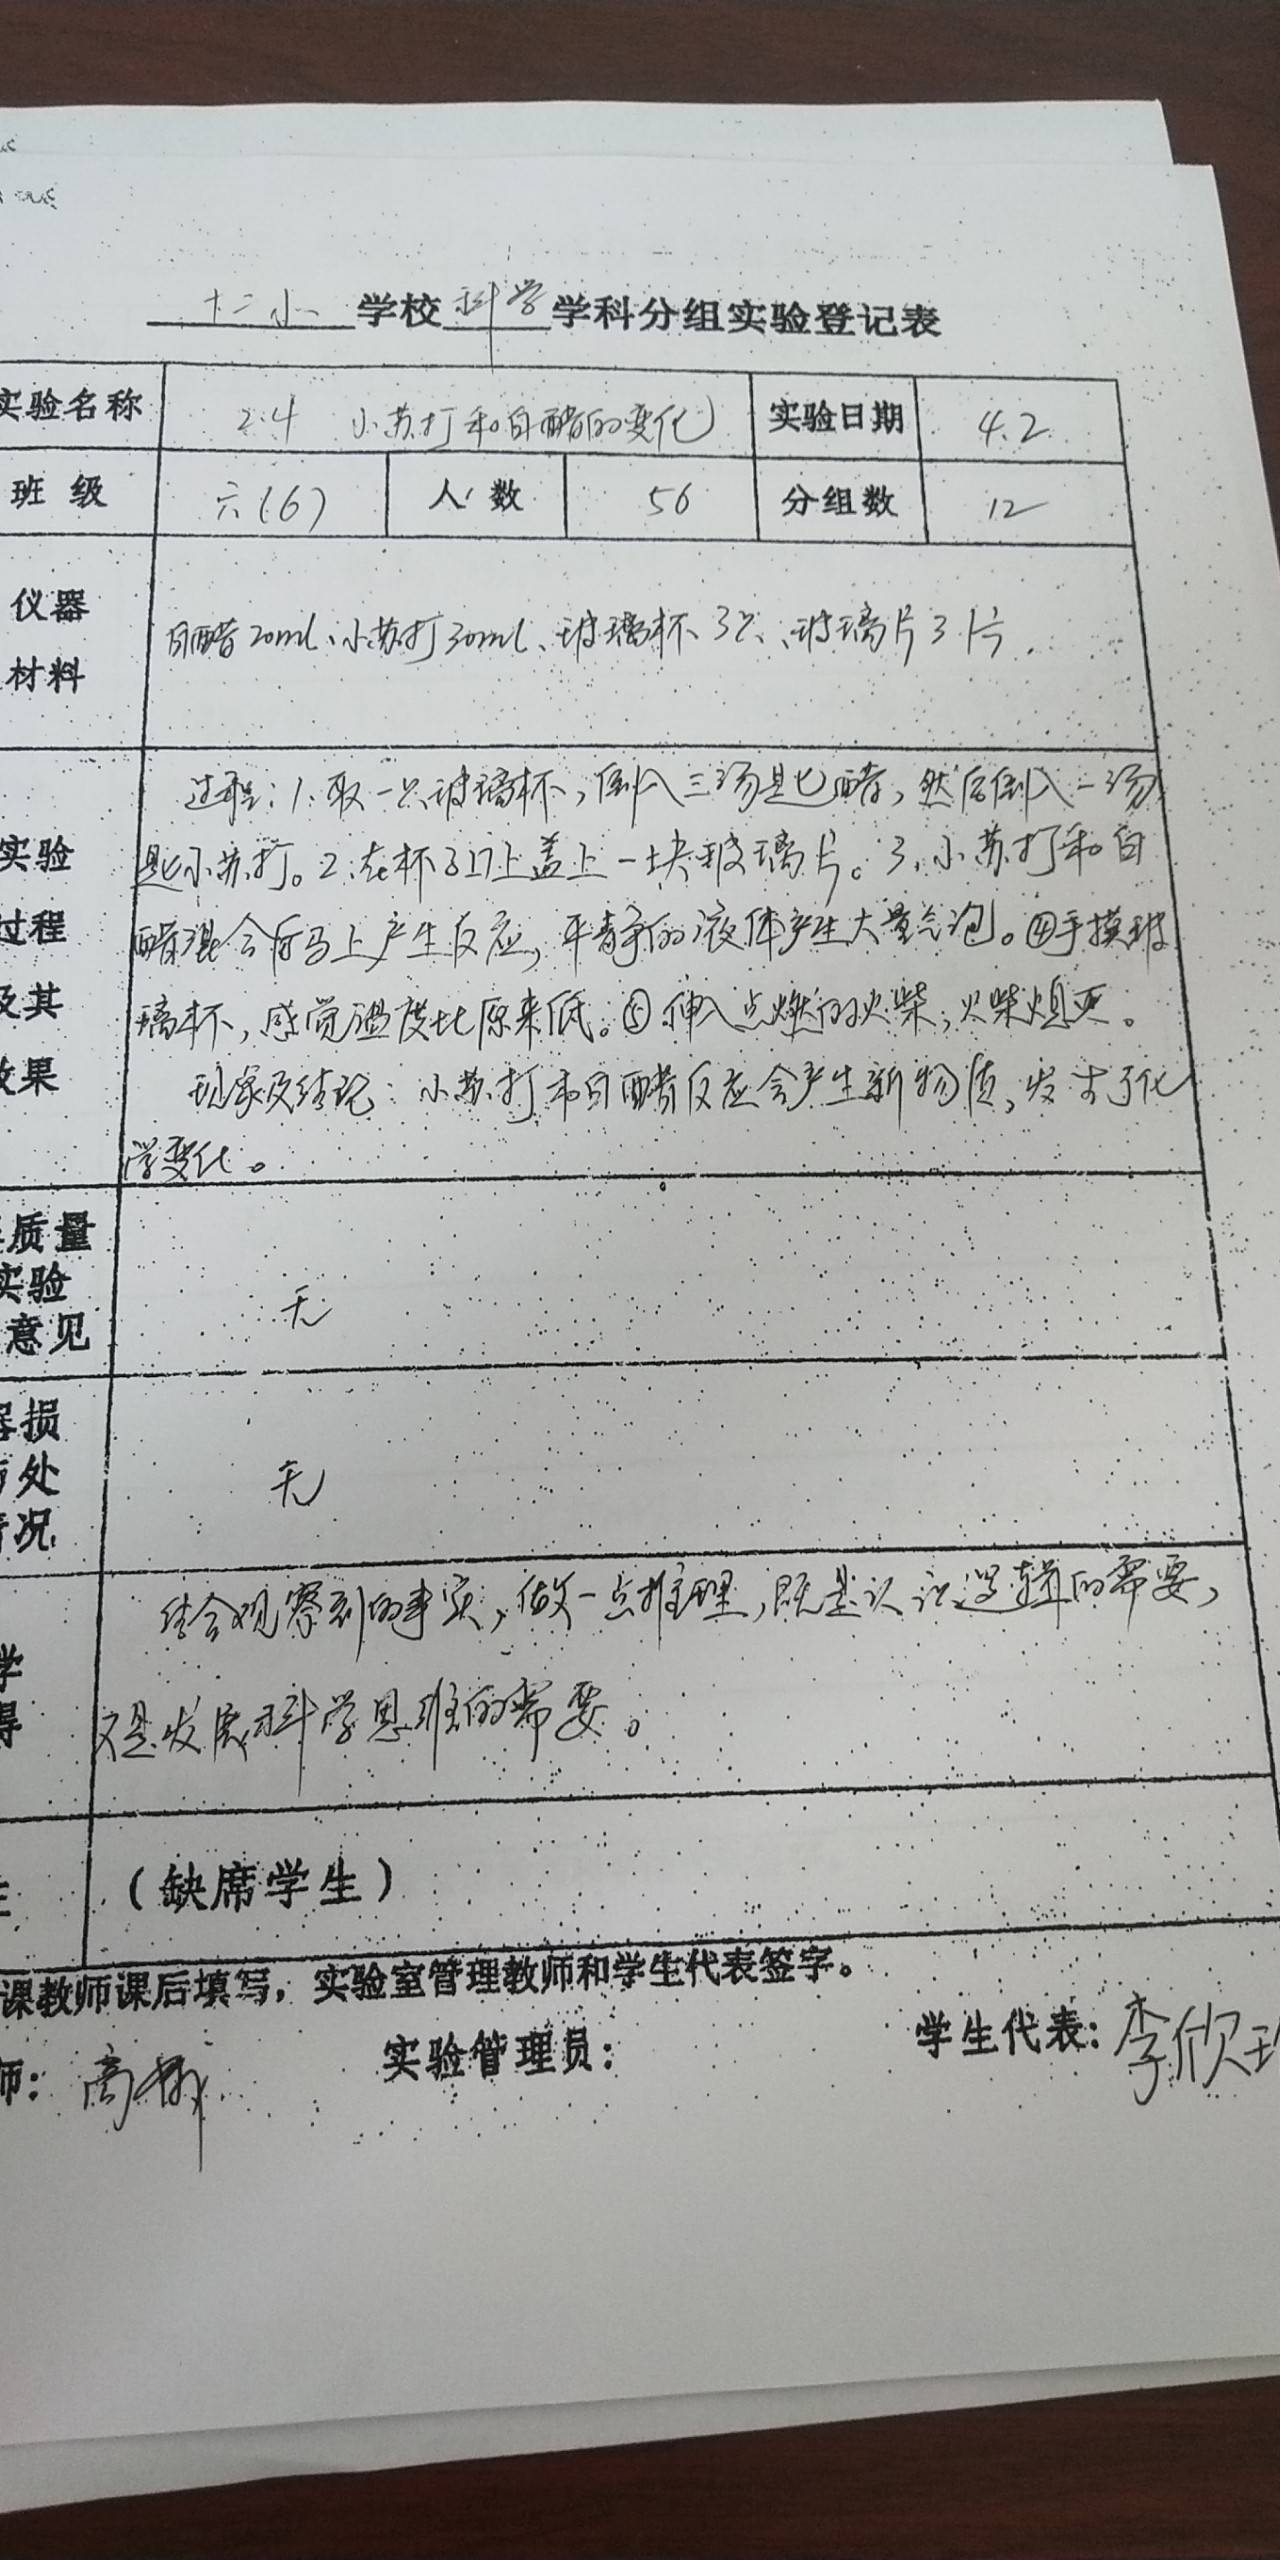 十二小 学校 科学 学科分组实验登记表
实验名称 2.4 小苏打和白醋的变化 实验日期 4.2
班级 六(6) 人数 56 分组数 12
仪器
材料
白醋20ml、小苏打30ml、玻璃杯3只、玻璃片3片.
实验
过程
及其
效果
过程:1.取一只玻璃杯,倒入三汤匙醋,然后倒入一汤
匙小苏打。2.在杯子口上盖上一块玻璃片。3.小苏打和白
醋混合后马上产生反应,平静的液体产生大量气泡。④手摸玻
璃杯,感觉温度比原来低。⑤伸入点燃的火柴,火柴熄灭。
现象及结论:小苏打和白醋反应会产生新物质,发生了化
学变化。
质量
实验
意见
无
损
处
情况
无
学
得
结合观察到的事实,做一点推理,既是认识逻辑的需要,
又是发展科学思维的需要。
(缺席学生)
课教师课后填写,实验室管理教师和学生代表签字。
师: 高 实验管理员: 学生代表: 李欣